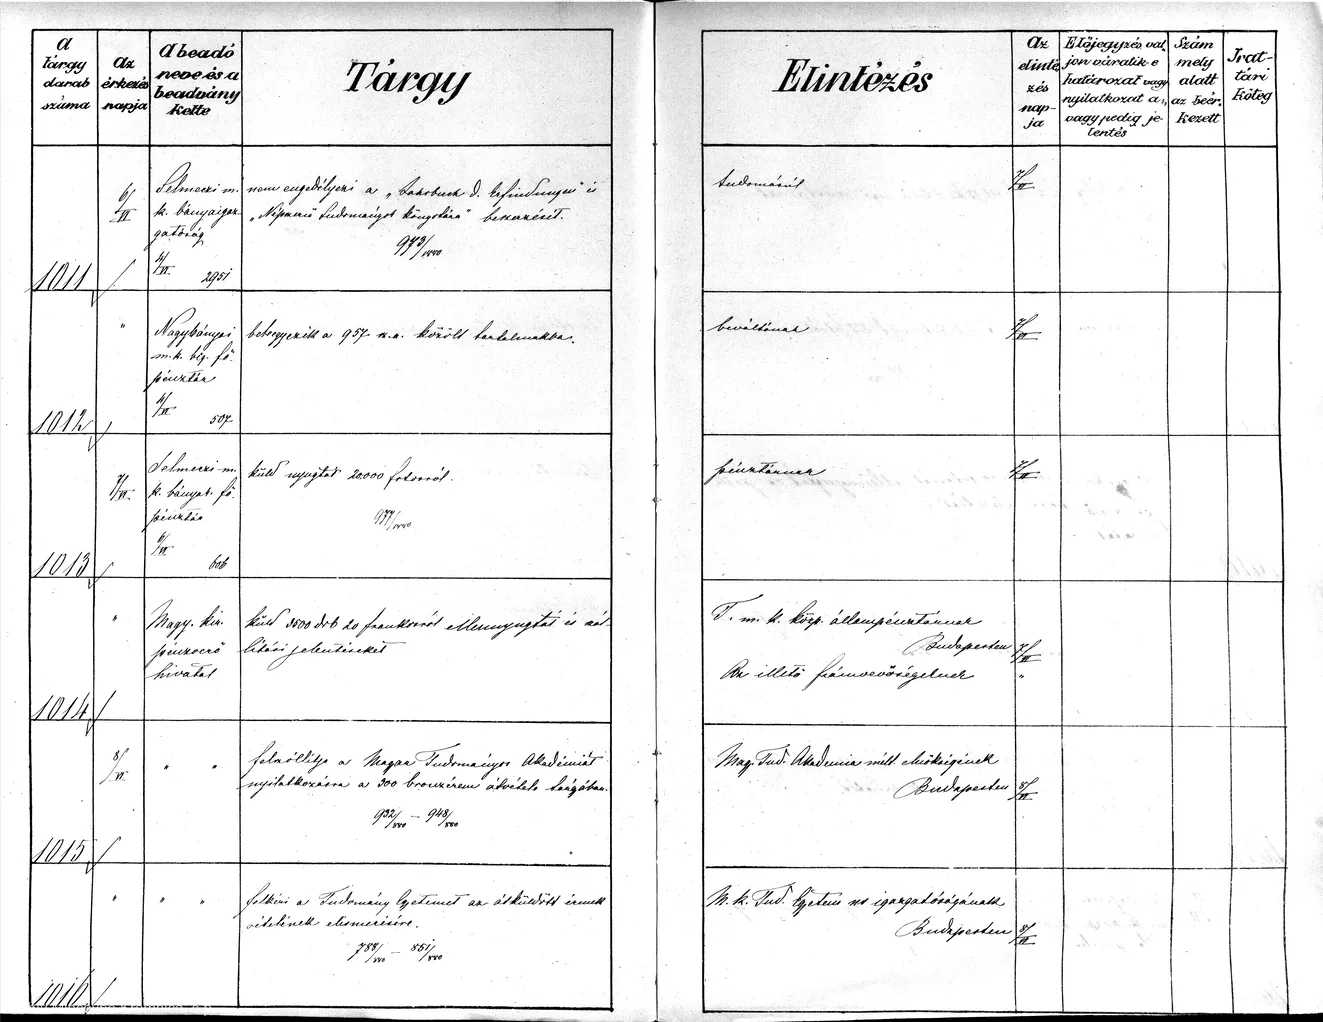 A tárgy darab száma
Az érkezés napja
A beadó neve és a beadvány kelte
Tárgy
Elintézés
Az elintézés napja
Előjegyzés valjon váratik e
határozat vagy
nyilatkozat a,
vagy pedig jelentés
Szám mely alatt az beérkezett
Irattári Köteg
1011
6/VI
Selmeczi m.
k. bányaigaz
gatóság
4/VI. 2951
nem engedélyezi a „Jahrbuch d. Erfindungen" és
„Népszerű tudományok könyvtára" beszerzését.
973/1880
tudomásúl
7/VI
1012
"
Nagybányai
m. k. big. fő
pénztár
4/VI 507
a 957 között
beváltónak
7/VI
1013
7/VI.
Selmeczi m.
k. bányat. fő
pénztár
6/VI. 606
küld nyugtát 20.000 frtról.
977/1880
pénztárnak
7/VI
1014
"
Magy. kir.
pénzverő
hivatal
küld 3500 drb 20 frankosról ellennyugtát és szál
lítási jelentéseket
T. m. k. közp. állampénztárnak
Budapesten
7/VI
Az illető fiámvevőségeknek
"
1015
8/VI.
" "
felszóllítja a Magyar Tudományos Akadémiát
nyilatkozásra a 300 bronzérem átvétele tárgyában.
932/880 – 948/880
Mag. Tud. Akademia mélt elnökségének
Budapesten
8/VI
1016
"
" "
felkéri a Tudomány Egyetemet az átküldött érmek
vételének elismerésére.
788/880 – 851/880
M. k. Tud. Egyetem igazgatóságának
Budapesten
8/VI